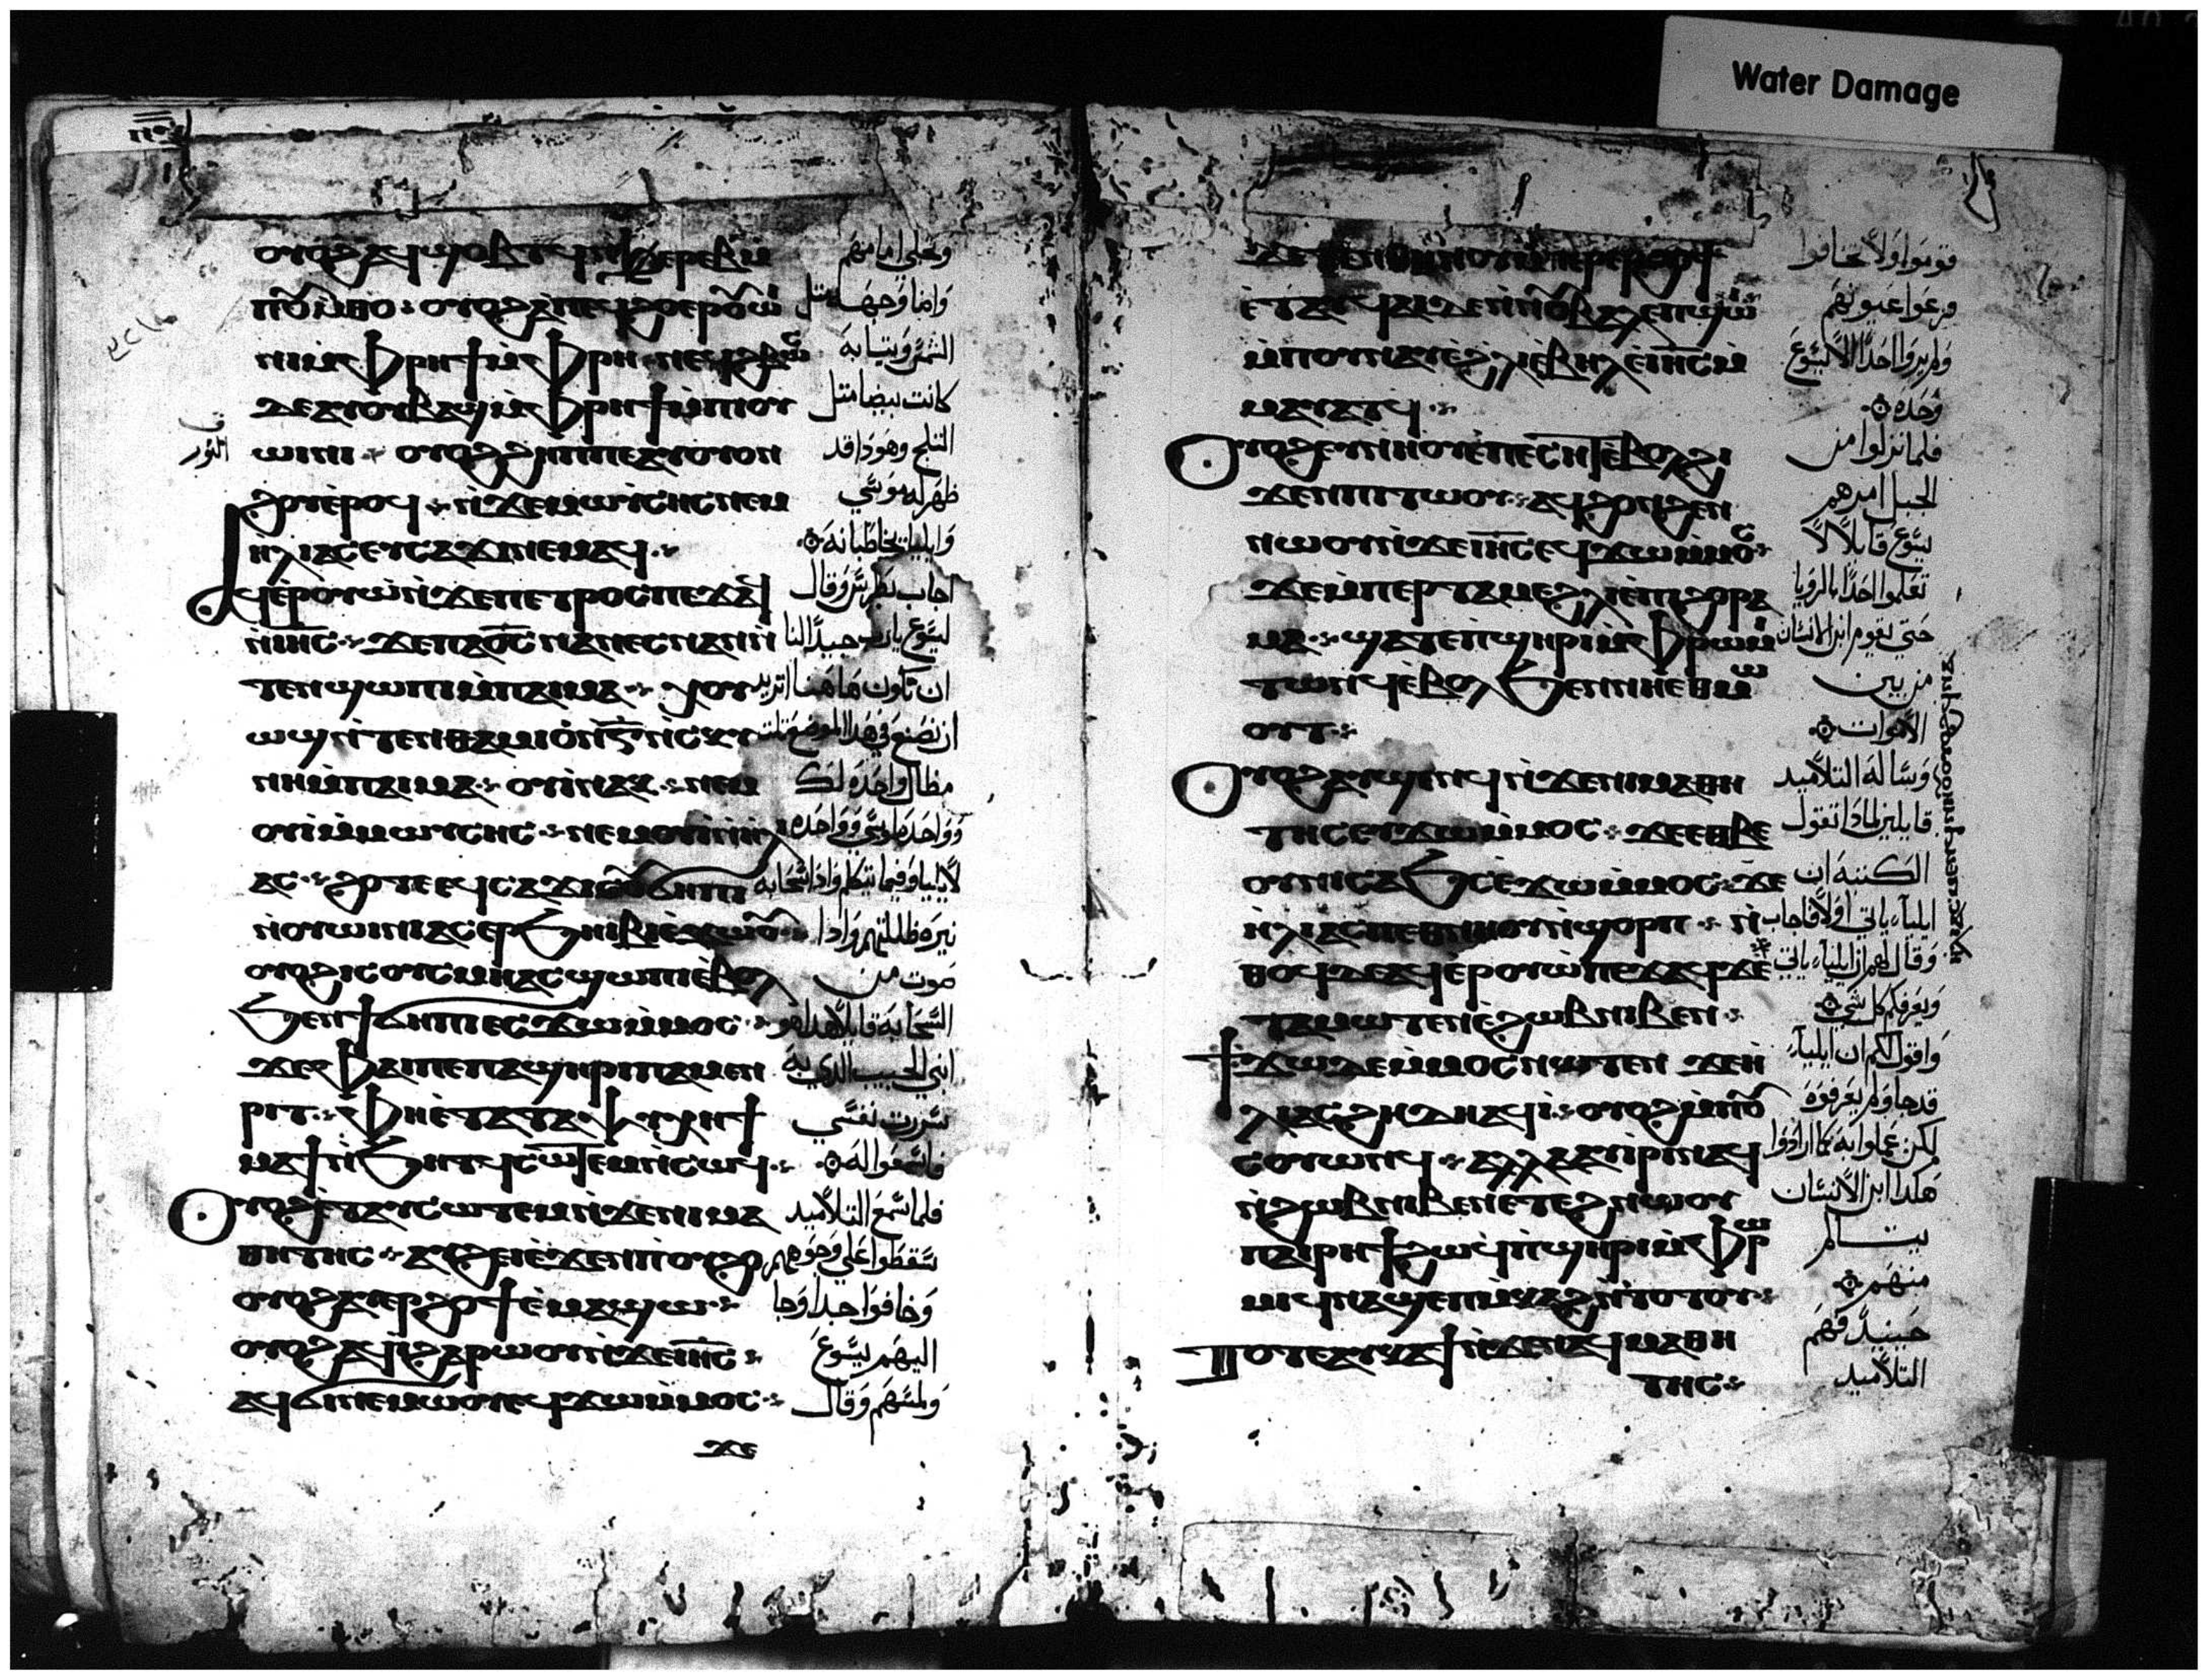 Water Damage
ⲟⲩⲟϩ ⲁϥϣⲟⲃⲧϥ ⲙ̀ⲡⲟⲩⲙ̀ⲑⲟ : ⲟⲩⲟϩ ⲁ̀ⲡⲉϥϩⲟ ⲉⲣⲟⲩⲱ̀
ⲓⲛⲓ ⲙ̀ⲫⲣⲏϯ ⲙ̀ⲫⲣⲏ ⲛⲉϥϩⲃⲱⲥ
ⲇⲉ ⲁⲩⲟⲩⲃⲁϣ ⲙ̀ⲫⲣⲏϯ ⲙ̀ⲡⲓⲟⲩ
ⲱⲓⲛⲓ ⲟⲩⲟϩ ϩⲏⲡⲡⲉ ⲁⲩⲟⲩⲟⲛ
ϩⲟⲩ ⲉ̀ⲣⲟϥ ⲛ̀ϫⲉ ⲙⲱⲩ̀ⲥⲏⲥ ⲛⲉⲙ
ⲏⲗⲓⲁⲥ ⲉⲩⲥⲁϫⲓ ⲛⲉⲙⲁϥ
ⲁϥⲉ̀ⲣⲟⲩⲱ̀ ⲛ̀ϫⲉ ⲡⲉⲧⲣⲟⲥ ⲡⲉϫⲁϥ
ⲛ̀ⲓⲏⲥ ϫⲉ ⲡⲁϭⲥ ⲛⲁⲛⲉⲥ ⲛⲁⲛ ⲛ̀
ⲧⲉⲛϣⲱⲡⲓ ⲙ̀ⲡⲁⲓⲙⲁ ⲭⲟⲩ
ⲱϣ ⲛ̀ⲧⲉⲛⲑⲁⲙⲓⲟ̀ ⲛ̀ⲅ ⲛ̀ⲥⲕⲩ
ⲛⲏ ⲙ̀ⲡⲁⲓⲙⲁ ⲟⲩⲓ̀ ⲛⲁⲕ ⲛⲉⲙ
ⲟⲩⲓ̀ ⲙ̀ⲙⲱⲩⲥⲏⲥ ⲛⲉⲙ ⲟⲩⲓ̀ ⲛ̀ⲏⲗⲓ
ⲁⲥ ϩⲟⲧⲉ ⲉϥⲥⲁϫⲓ ⲓⲥ ⲟⲩϭⲏⲡⲓ
ⲛ̀ⲟⲩⲱⲓⲛⲓ ⲁⲥⲉⲣϧⲏⲓⲃⲓ ⲉ̀ϫⲱⲟⲩ
ⲟⲩⲟϩ ⲓⲥ ⲟⲩⲥⲙⲏ ⲁⲥϣⲱⲡⲓ ⲉ̀ⲃⲟⲗ
ϧⲉⲛ ϯϭⲏⲡⲓ ⲉⲥϫⲱ ⲙ̀ⲙⲟⲥ
ϫⲉ ⲫⲁⲓ ⲡⲉ ⲡⲁϣⲏⲣⲓ ⲡⲁⲙⲉⲛ
ⲣⲓⲧ ⲫⲏ ⲉ̀ⲧⲁ ⲧⲁⲯⲩⲭⲏ ϯ
ⲙⲁϯ ⲛ̀ϧⲏⲧϥ ⲥⲱⲧⲉⲙ ⲛ̀ⲥⲱϥ
ⲟⲩⲟϩ ⲉ̀ⲧⲁⲩⲥⲱⲧⲉⲙ ⲛ̀ϫⲉ ⲛⲓⲙⲁ
ⲑⲏⲧⲏⲥ ⲁⲩϩⲉⲓ ⲉ̀ϫⲉⲛ ⲡⲟⲩϩⲟ
ⲟⲩⲟϩ ⲁⲩⲉⲣϩⲟϯ ⲉ̀ⲙⲁϣⲱ
ⲟⲩⲟϩ ⲁϥⲓ̀ ϩⲁⲣⲱⲟⲩ ⲛ̀ϫⲉ ⲓⲏⲥ
ⲁϥϭⲓ ⲛⲉⲙⲱⲟⲩ ⲉϥϫⲱ ⲙ̀ⲙⲟⲥ
ϫⲉ
وتجلى امامهم
واضا وجهه مثل
الشمس وثيابه
كانت بيضا مثل
الثلج وهوذا قد
ظهر له موسى
وايليا يخاطبانه
اجاب بطرس وقال
ليسوع يارب جيدا لنا
ان نكون هاهنا اتريد
ان نصنع في هذا الموضع ثلث
مظال واحدة لك
وواحدة لموسى وواحدة
لايليا وفيما يتكلم واذا سحابة
نيرة ظللتهم واذا
صوت من
السحابة قايلا هذا هو
ابني الحبيب الذي به
سررت نفسي
فاسمعوا له
فلما سمع التلاميذ
سقطوا على وجوههم
وخافوا جدا وجا
اليهم يسوع
ولمسهم وقال
ق
النور
ϫⲉ ⲧⲉⲛ ⲑⲏⲛⲟⲩ ⲙ̀ⲡⲉⲣⲉⲣϩⲟϯ
ⲉ̀ⲧⲁⲩϥⲁⲓ ⲇⲉ ⲛ̀ⲛⲟⲩⲃⲁⲗ ⲉ̀ⲡϣⲱⲓ
ⲙ̀ⲡⲟⲩⲛⲁⲩ ⲉ̀ϩⲗⲓ ⲉ̀ⲃⲏⲗ ⲉ̀ⲓⲏⲥ ⲙ̀
ⲙⲁⲩⲁⲧϥ
ⲟⲩⲟϩ ⲉⲩⲛⲏⲟⲩ ⲉ̀ⲡⲉⲥⲏⲧ ⲉ̀ⲃⲟⲗ ϩⲓ
ϫⲉⲛ ⲡⲓⲧⲱⲟⲩ ⲁϥϩⲟⲛϩⲉⲛ
ⲛⲱⲟⲩ ⲛ̀ϫⲉ ⲓⲏⲥ ⲉϥϫⲱ ⲙ̀ⲙⲟⲥ
ϫⲉ ⲙ̀ⲡⲉⲣⲧⲁⲙⲉ ϩⲗⲓ ⲉ̀ⲡⲓϩⲟⲣⲁ
ⲙⲁ ϣⲁⲧⲉ ⲡ̀ϣⲏⲣⲓ ⲙ̀ⲫⲣⲱⲙⲓ
ⲧⲱⲛϥ ⲉ̀ⲃⲟⲗ ϧⲉⲛ ⲛⲏⲉⲑⲙⲱ
ⲟⲩⲧ
ⲟⲩⲟϩ ⲁⲩϣⲉⲛϥ ⲛ̀ϫⲉ ⲛⲓⲙⲁⲑⲏ
ⲧⲏⲥ ⲉⲩϫⲱ ⲙ̀ⲙⲟⲥ ϫⲉ ⲉⲑⲃⲉ
ⲟⲩ ⲛⲓⲥⲁϧ ⲥⲉϫⲱ ⲙ̀ⲙⲟⲥ ϫⲉ
ⲏ̀ⲗⲓⲁⲥ ⲡⲉⲑⲛⲏⲟⲩ ⲛ̀ϣⲟⲣⲡ ⲛ̀
ⲑⲟϥ ⲇⲉ ⲁϥⲉⲣⲟⲩⲱ̀ ⲡⲉϫⲁϥ ϫⲉ
ⲧⲁⲙⲱⲧⲉⲛ ⲉ̀ϩⲱⲃ ⲛⲓⲃⲉⲛ
ϯϫⲱ ⲇⲉ ⲙ̀ⲙⲟⲥ ⲛⲱⲧⲉⲛ ϫⲉ ⲏ̀
ⲗⲓⲁⲥ ϩⲏⲇⲏ ⲁϥⲓ̀ ⲟⲩⲟϩ ⲙ̀ⲡⲟⲩ
ⲥⲟⲩⲱⲛϥ ⲁⲗⲗⲁ ⲁⲩⲓ̀ⲣⲓ ⲛⲁϥ
ⲛ̀ϩⲱⲃ ⲛⲓⲃⲉⲛ ⲉⲧⲉϩⲛⲱⲟⲩ
ⲡⲁⲓⲣⲏϯ ϩⲱϥ ⲡ̀ϣⲏⲣⲓ ⲙ̀ⲫⲣⲱ
ⲙⲓ ϥⲛⲁϣⲉⲡ ⲙ̀ⲕⲁϩ ⲛ̀ⲧⲟⲧⲟⲩ
ⲧⲟⲧⲉ ⲁⲩⲕⲁϯ ⲛ̀ϫⲉ ⲛⲓⲙⲁⲑⲏ
ⲧⲏⲥ
قوموا ولا تخافوا
فرفعوا عيونهم
ولم يروا احدا الا يسوع
وحده
فلما نزلوا من
الجبل امرهم
يسوع قايلا لا
تعلموا احدا بالرويا
حتى يقوم ابن الانسان
من بين
الاموات
وساله التلاميذ
قايلين لماذا تقول
الكتبة ان
ايلياء ياتي اولا فاجاب
وقال لهم ان ايلياء ياتي
ويعرفكم كل شي
واقول لكم ان ايلياء
قد جا ولم يعرفوه
لكن عملوا به كما ارادوا
هكذا ابن الانسان
يتالم
منهم
حينيذ فهم
التلاميذ